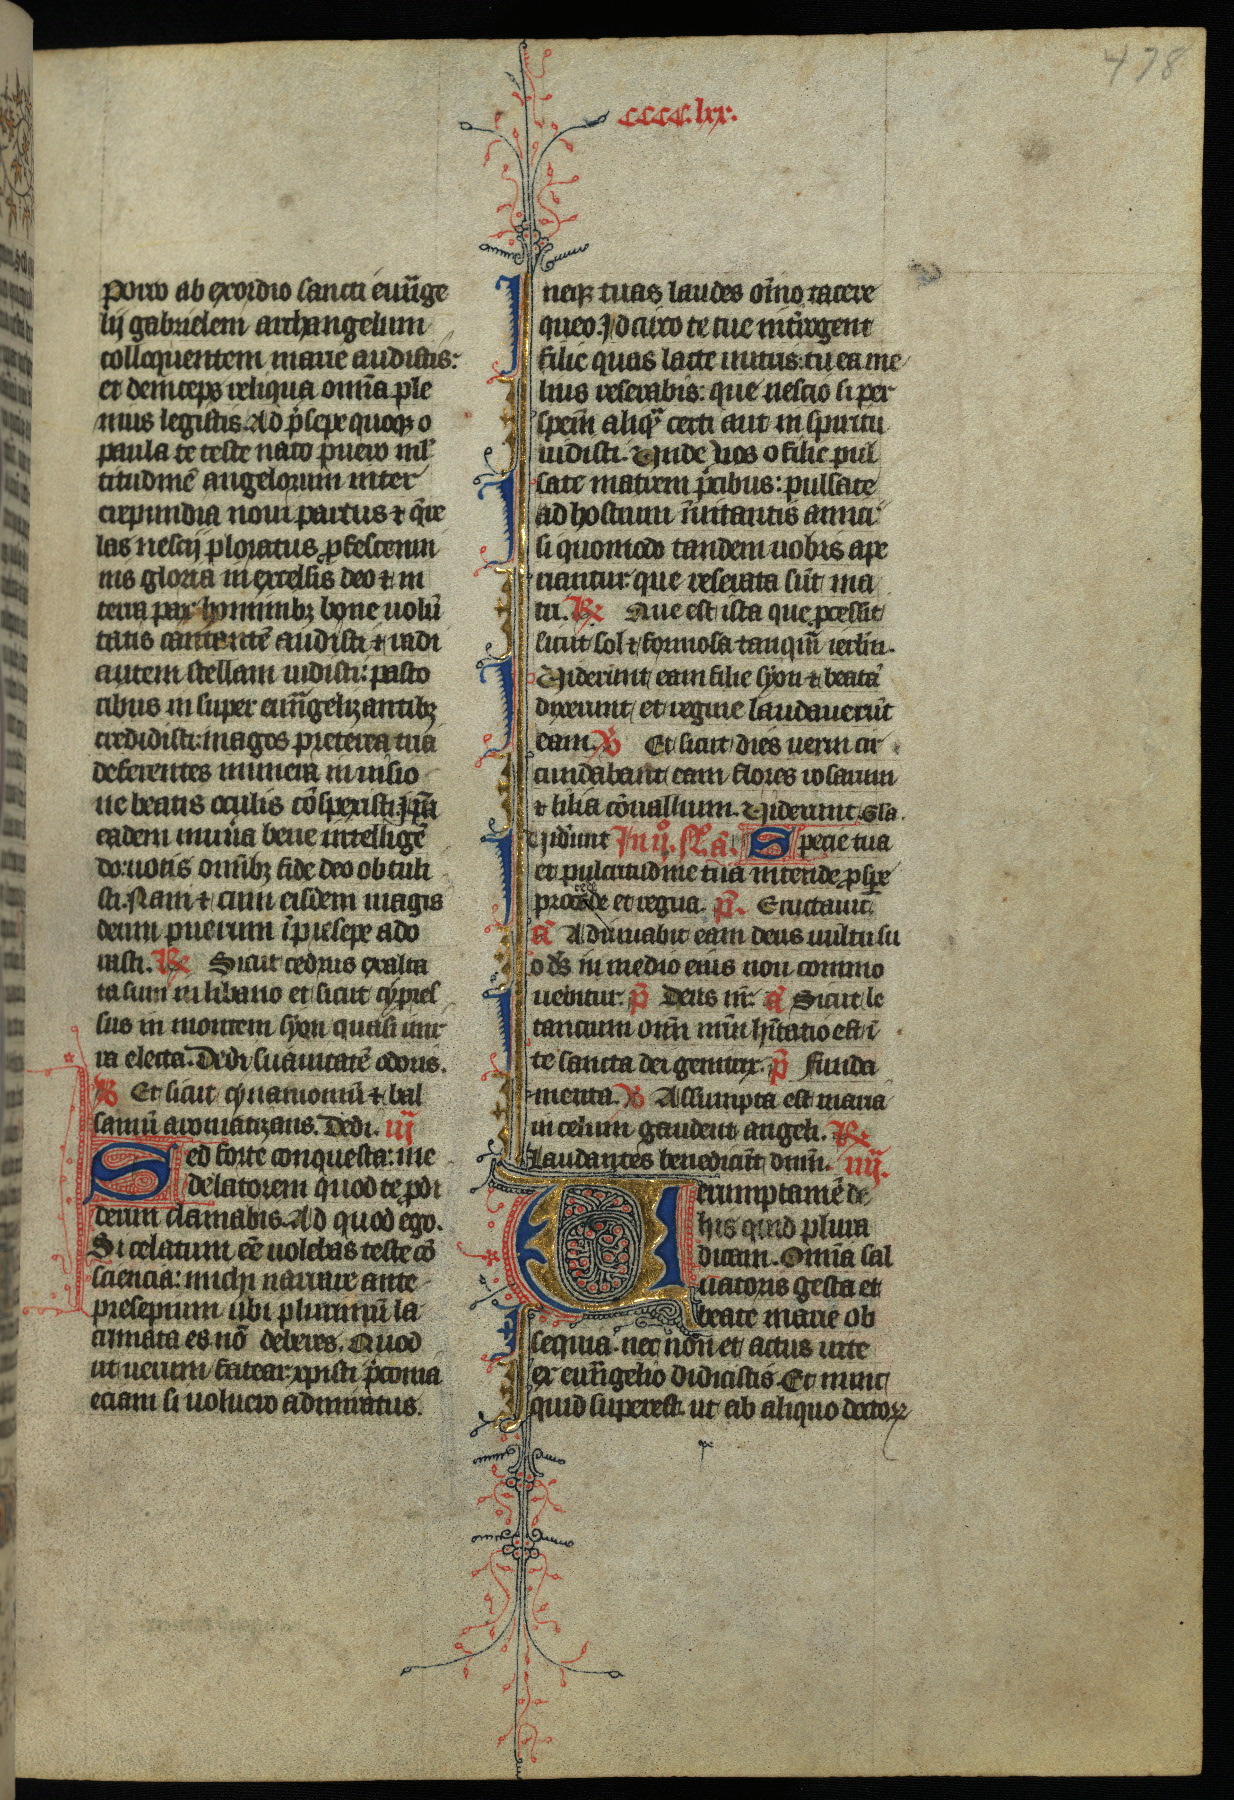 478
cccc.lxx.
porro ab exordio sancti euūge
lij gabrielem archangelum
colloquentem marie audistis:
et deinceps reliqua omīa ple
nius legistis. Ad p̄sepe quoqꝫ o
paula te teste nato puero ml̄
titudinē angelorum inter
crepundia noui partus ⁊ q̄re
las nescij ploratus
nis gloria in excelsis deo ⁊ in
terra pax hominibꝫ bone uolū
tatis cantantē audisti ⁊ radi
antem stellam uidisti: pasto
ribus in super euūgelizantibꝫ
credidisti: magos preterea tua
deferentes munera in uisio
ne beatis oculis cōspexisti
eadem mun̄a bene intelligē
do: uotis om̄ibꝫ fide deo obtuli
sti. Nam ⁊ cum eisdem magis
deum puerum ī presepe ado
rasti. R̷ Sicut cedrus exalta
ta sum in libano et sicut cypres
sus in montem syon quasi mir
ra electa. Dedi suauitatē odoris.
V̷ Et sicut cynamomū ⁊ bal
samū aromatizans. Dedi. iij
Sed forte conquesta: me
delatorem quod te ꝓdi
derim clamabis. Ad quod ego.
Si celatum eē uolebas teste cō
sciencia: michi narrare ante
presepium ubi plurimū la
crimata es nō deberes. Quod
ut uerum fatear: xpisti p̄conia
eciam si uoluero admiratus.
neqꝫ tuas laudes om̄no tacere
queo. Idcirco te tue int̄rogent
filie quas lacte nutris: tu ea me
lius reserabis: que nescio si per
spem̄ aliq̄ certi aut in spiritu
uidisti. Unde uos o filie pul
sate matrem p̄cibus: pulsate
ad hostium īuitantis amici
si quomodo tandem uobis ape
riantur que reserata sūt ma
tri. R̷ Que est ista que ꝓcessit
sicut sol ⁊ formosa tanquā ierlm̄.
Uiderunt eam filie syon ⁊ beatā
dixerunt et regine laudauerūt
eam. V̷ Et sicut dies uerni cir
cundabant eam flores rosarum
⁊ lilia cōuallium. Uiderunt. Gla.
Uid̄unt In ij̊. Specie tua
et pulcritudine tua intende ꝓspe
procede et regna. p̄s. Eructauit.
ā Adiuuabit eam deus uultu su
o ds̄ in medio eius non commo
uebitur. p̄s Deus nr̄. ā Sicut le
tantium om̄ nr̄m hītatio est ī
te sancta dei genitrix. p̄s Funda
menta. V̷ Assumpta est maria
in celum gaudent angeli. R̷
Laudantes benedicūt dnm̄. iiij.
Uerumptamē de
his quid plura
dicam. Omīa sal
uatoris gesta et
beate marie ob
sequia. nec non et actus uite
ex euūgelio didicistis. Et nunc
quid superest. ut ab aliquo doctoꝝ